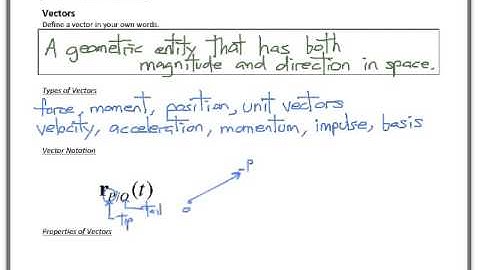 Vectors
Define a vector in your own words.
A geometric entity that has both
magnitude and direction in space.
Types of Vectors
force, moment, position, unit vectors
velocity, acceleration, momentum, impulse, basis
Vector Notation
P
r_{P/O}(t)
tail
O
tip
Properties of Vectors